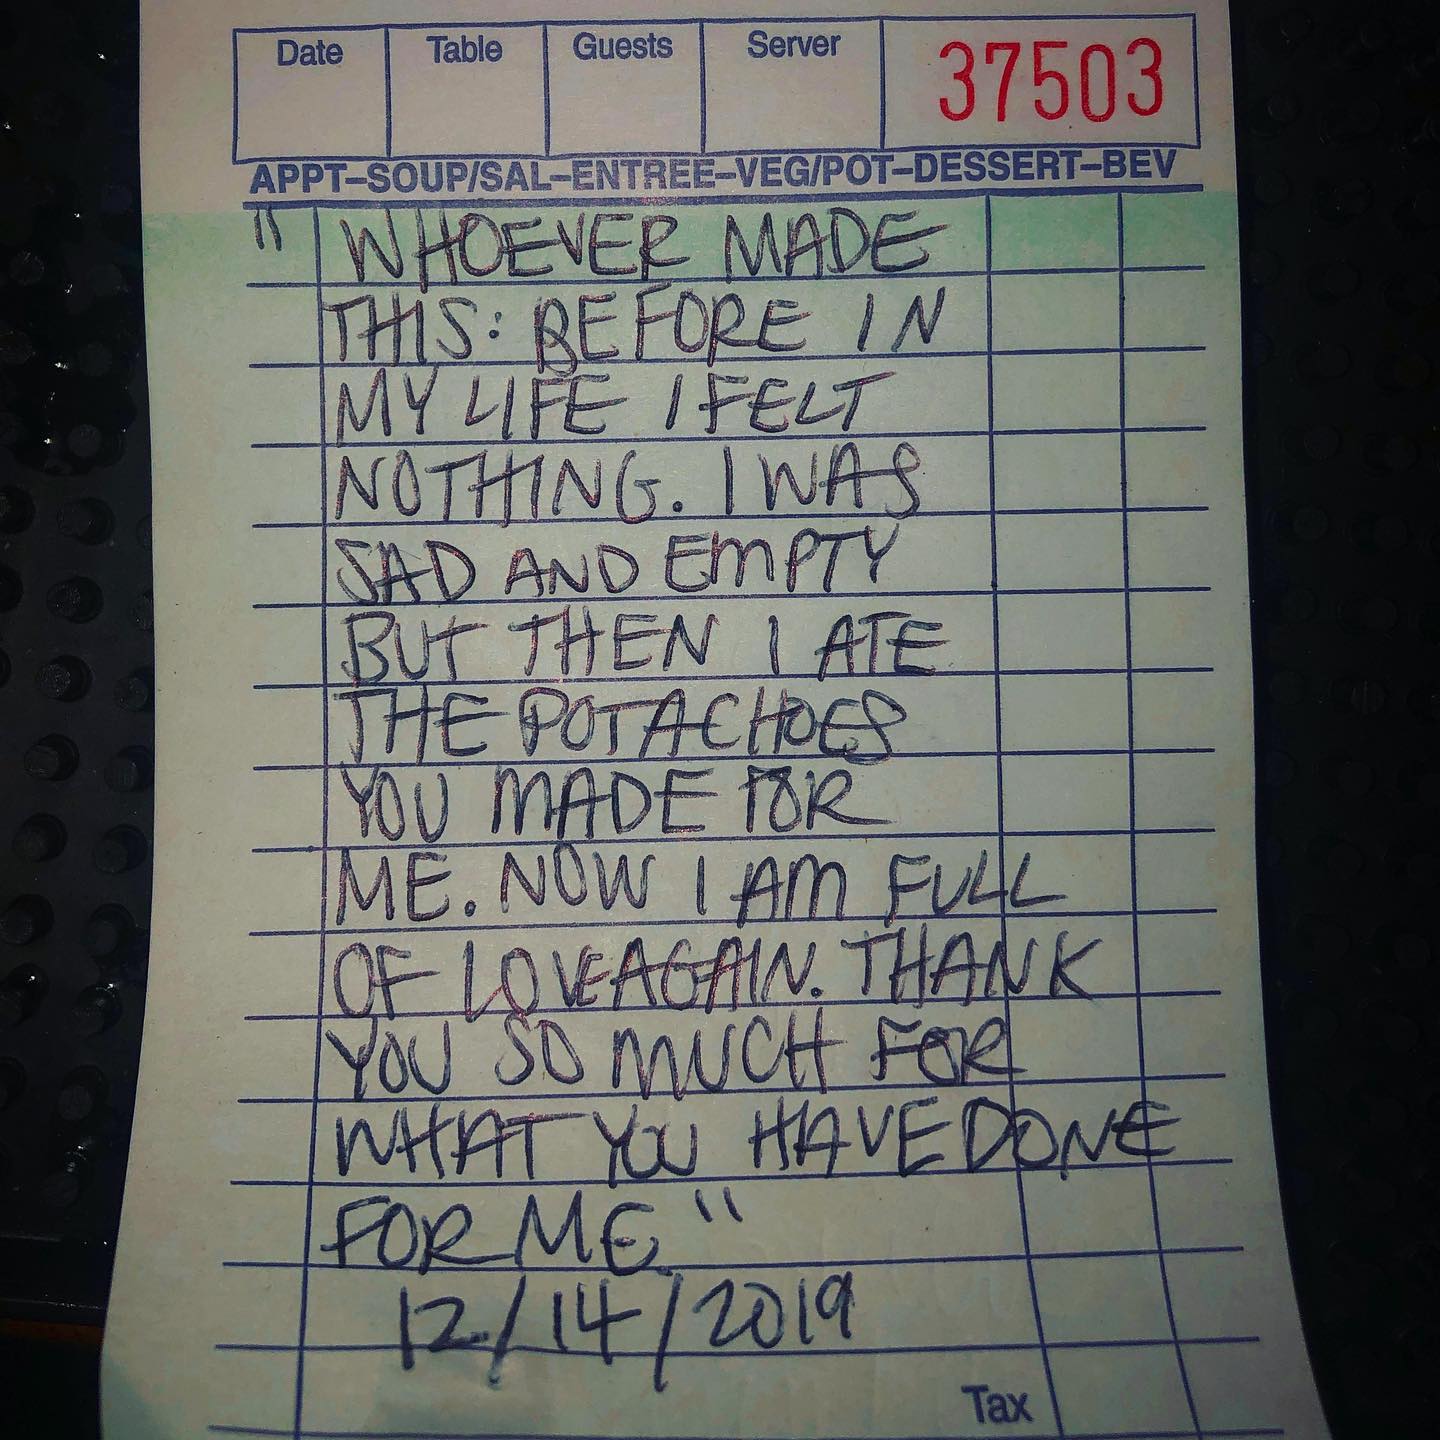 Date Table Guests Server 37503
APPT–SOUP/SAL–ENTREE–VEG/POT–DESSERT–BEV
" WHOEVER MADE
THIS: BEFORE IN
MY LIFE I FELT
NOTHING. I WAS
SAD AND EMPTY
BUT THEN I ATE
THE POTACHOES
YOU MADE FOR
ME. NOW I AM FULL
OF LOVE AGAIN. THANK
YOU SO MUCH FOR
WHAT YOU HAVE DONE
FOR ME "
12/14/2019
Tax